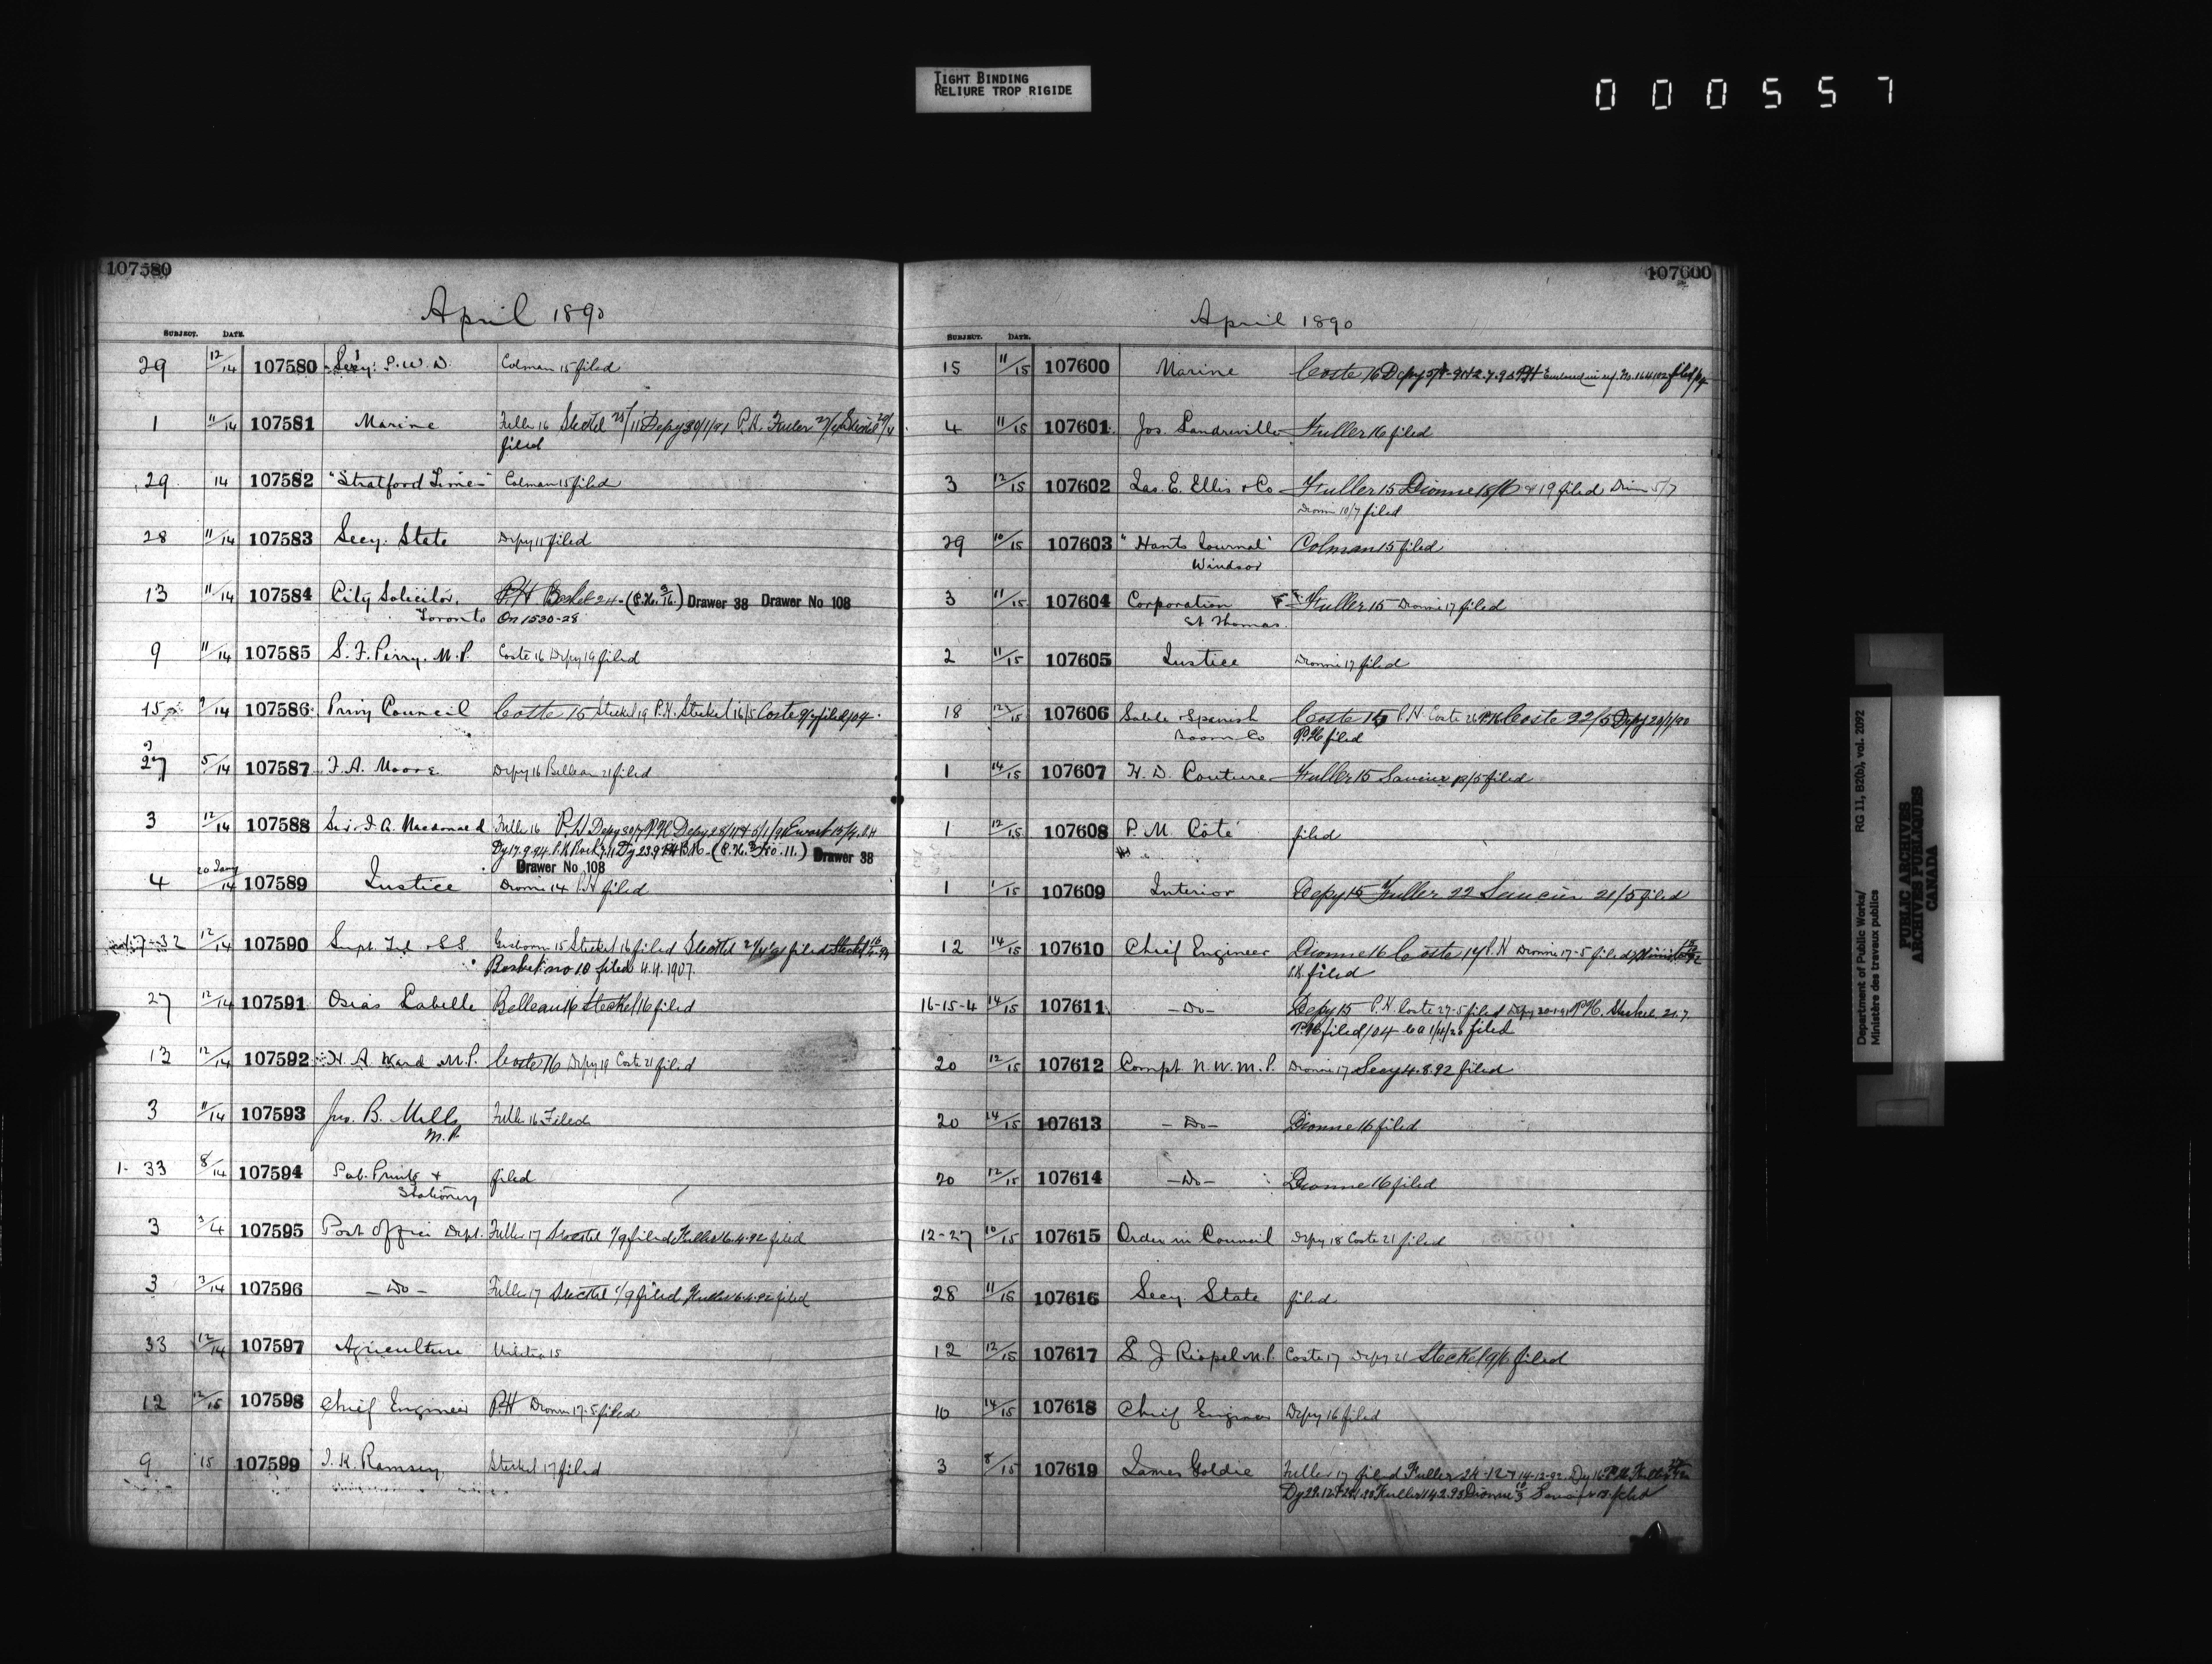 TIGHT BINDING
RELIURE TROP RIGIDE
000557
107580
April 1890
SUBJECT. DATE.
29 12/14 107580 Secy: P.W.D. Colman 15 filed
1 11/14 107581 Marine Fuller 16 Steckel Depy 30/1/91 P.H. Fuller
filed
29 14 107582 "Stratford Times" Colman 15 filed
28 11/14 107583 Secy. State Depy 11 filed
13 11/14 107584 City Solicitor, PH 24- Drawer 38 Drawer No 108
Toronto On 1530-28
9 11/14 107585 S. F. Perry. M.P. Coste 16 Depy 19 filed
15 107586 Privy Council Coste 15 Steckel 19 P.H. Steckel 16/5 Coste filed/04.
27 5/14 107587 F. A. Moore Depy 16 Belleau 21 filed
3 12/14 107588 Sir J. A. Macdonald Fuller 16 P.H Depy 30/7 P.H Depy Ewart
Dy 17.9.94 Drawer 38
Drawer No 108
4 20 Jany/14 107589 Justice Dionne 14 P.H filed
7-32 12/14 107590 Supt. Tel & S.S. Gisborne 15 Steckel 16 filed Steckel filed Steckel
Basket no 10 filed 4.4.1907.
27 12/14 107591 Osias Labelle Belleau 16 Steckel 16 filed
12 12/14 107592 H. A. Ward M.P. Coste 16 Depy 19 Coste 21 filed
3 11/14 107593 Jno. B. Mills Fuller 16 Filed
M.P.
1- 33 8/14 107594 Pub. Printg & filed
Stationery
3 3/4 107595 Post Office Dept. Fuller 17 Steckel 1/9 filed Fuller 16.4.92 filed
3 3/14 107596 - Do - Fuller 17 Steckel 1/9 filed Fuller 16.4.92 filed
33 12/14 107597 Agriculture Militia 15
12 12/15 107598 Chief Engineer PH Dionne 17-5 filed
9 15 107599 J. K. Ramsey Steckel 17 filed
107600
April 1890
SUBJECT. DATE.
15 11/15 107600 Marine Coste 16 Depy PH Enclosed in ref. No. 164102 filed
4 11/15 107601 Jos. Landreville Fuller 16 filed
3 12/15 107602 Jas. E. Ellis & Co Fuller 15 Dionne 18/6 & 19 filed Dionne 5/7
Dionne 10/7 filed
29 10/15 107603 "Hants Journal" Colman 15 filed
Windsor
3 11/15 107604 Corporation Fuller 15 Dionne 17 filed
St Thomas.
2 11/15 107605 Justice Dionne 17 filed
18 12/15 107606 Sable & Spanish Coste 15 P.H. Coste 26 P.H. Coste 22/5 Depy
Boom Co. P.H. filed
1 14/15 107607 H. D. Couture Fuller 15 Saucier 12/5 filed
1 12/15 107608 P. M. Côté filed
1 1/15 107609 Interior Depy 15 Fuller 22 Saucier 21/5 filed
12 14/15 107610 Chief Engineer Dionne 16 Coste 17 P.H Dionne 17-5 filed
P.H. filed
16-15-4 14/15 107611 -Do- Depy 15 P.H. Coste 27-5 filed Depy P.H. Steckel 21.7.
P.H. filed/04 filed
20 12/15 107612 Compt. N.W.M.P. Dionne 17 Secy 4.8.92 filed
20 14/15 107613 - Do - Dionne 16 filed
20 12/15 107614 -Do- Dionne 16 filed
12-27 10/15 107615 Order in Council Depy 18 Coste 21 filed
28 11/15 107616 Secy. State filed
12 12/15 107617 L. J Riopel M.P. Coste 17 Depy 21 Steckel 9/6 filed
10 14/15 107618 Chief Engineer Depy 16 filed
3 8/15 107619 James Goldie Fuller 17 filed Fuller 24-12 & 14-12-92 Dy 16 P.H. Fuller
Dy 29.12 Fuller 14.2.93 Dionne filed
Department of Public Works/
Ministère des travaux publics
RG 11, B2(b), vol. 2092
PUBLIC ARCHIVES
ARCHIVES PUBLIQUES
CANADA